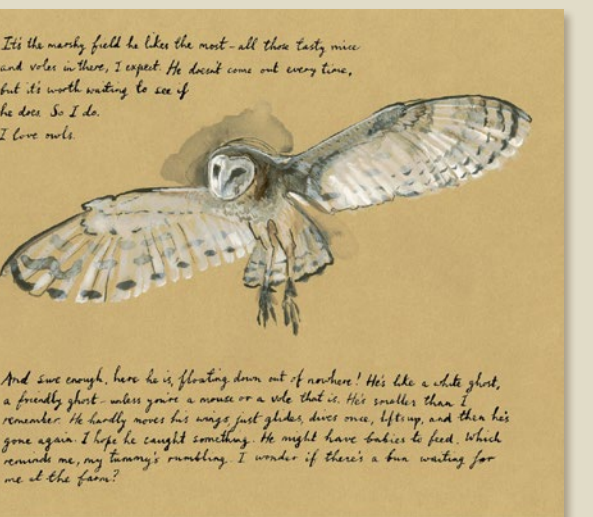 It's the marshy field he likes the most - all those tasty mice
and voles in there, I expect. He doesn't come out every time,
but it's worth waiting to see if
he does. So I do.
I love owls.
And sure enough, here he is, floating down out of nowhere! He's like a white ghost,
a friendly ghost - unless you're a mouse or a vole that is. He's smaller than I
remember. He hardly moves his wings, just glides, dives once, lifts up, and then he's
gone again. I hope he caught something. He might have babies to feed. Which
reminds me, my tummy's rumbling. I wonder if there's a bun waiting for
me at the farm?